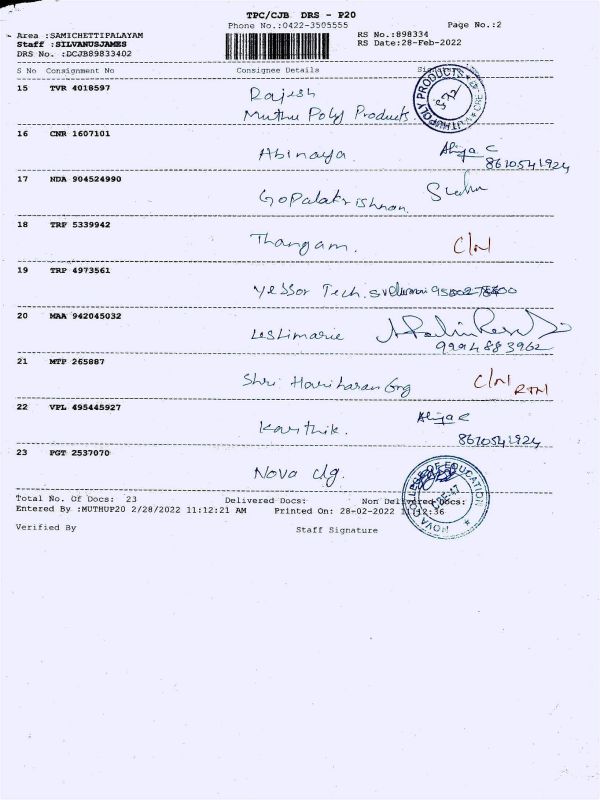 TPC/CJB DRS - P20
Phone No.:0422-3505555
Page No.:2
Area :SAMICHETTIPALAYAM
RS No.:898334
Staff :SILVANUSJAMES
RS Date:28-Feb-2022
DRS No. :DCJB89833402
S No Consignment No Consignee Details
15 TVR 4018597 Rajesh
Muthu Poly Products
16 CNR 1607101
Abinaya
8610541924
17 NDA 904524990
Gopalakrishnan
18 TRP 5339942
Thangam. C/N
19 TRP 4973561
Yessor Tech.
20 MAA 942045032
Leslimarie
9994883962
21 MTP 265887
Shri Hariharan Eng C/N RTN
22 VPL 495445927
Karthik.
8610541924
23 PGT 2537070
Nova clg.
Total No. Of Docs: 23 Delivered Docs: Non Delivered Docs:
Entered By :MUTHUP20 2/28/2022 11:12:21 AM Printed On: 28-02-2022 11:12:36
Verified By Staff Signature